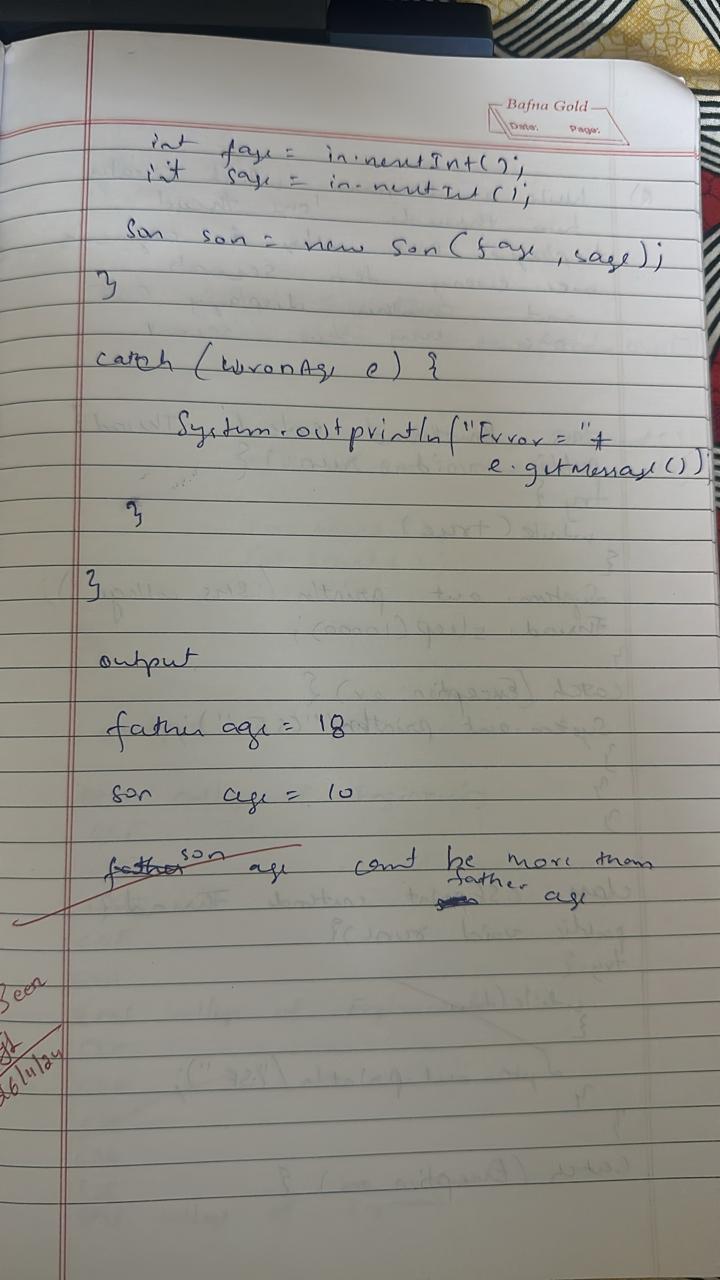 Bafna Gold
Date: Page:
int fage = in.nextInt();
int sage = in.nextInt();
Son son = new Son(fage, sage);
}
catch (WronAge e) {
System.out println("Error = "+
e.getMessage())
}
}
output
father age = 18
son age = 10
father son age cannt be more than
father age
Seen
26/11/24